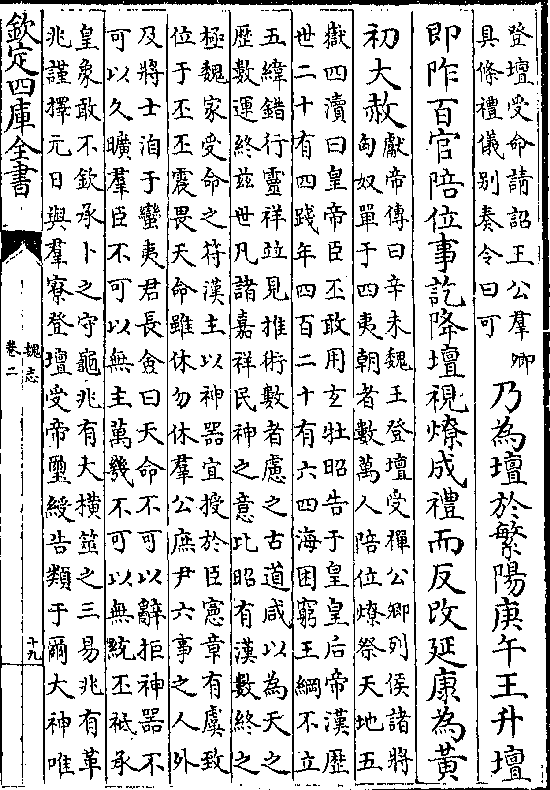 登壇受命請詔王公羣卿
具條禮儀别奏令曰可
乃為壇於繁陽庚午王升壇
即阼百官陪位事訖降壇視燎成禮而反改延康為黃
初大赦
獻帝傳曰辛未魏王登壇受禪公卿列侯諸將
匈奴單于四夷朝者數萬人陪位燎祭天地五
嶽四瀆曰皇帝臣丕敢用玄牡昭告于皇皇后帝漢歴
世二十有四踐年四百二十有六四海困窮王綱不立
五緯錯行靈祥竝見推術數者慮之古道咸以為天之
歴數運終兹世凡諸嘉祥民神之意比昭有漢數終之
極魏家受命之符漢主以神器宜授於臣憲章有虞致
位于丕丕震畏天命雖休勿休羣公庶尹六事之人外
及將士洎于蠻夷君長僉曰天命不可以辭拒神器不
可以久曠羣臣不可以無主萬幾不可以無統丕祗承
皇象敢不欽承卜之守龜兆有大横筮之三易兆有革
兆謹擇元日與羣寮登壇受帝璽綬告類于爾大神唯
欽定四庫全書
魏志
卷二
十九